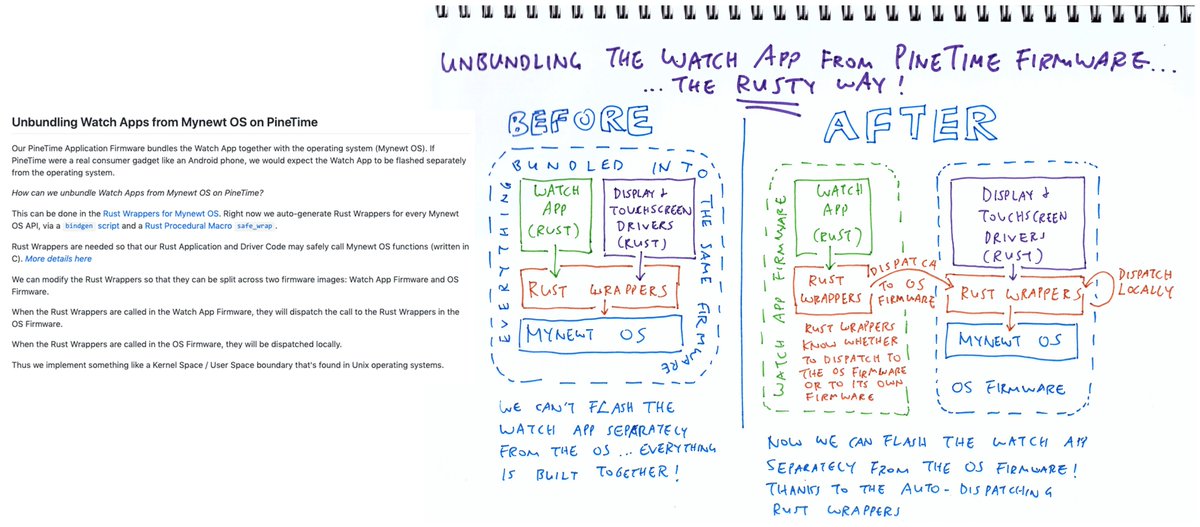 Unbundling Watch Apps from Mynewt OS on PineTime
Our PineTime Application Firmware bundles the Watch App together with the operating system (Mynewt OS). If
PineTime were a real consumer gadget like an Android phone, we would expect the Watch App to be flashed separately
from the operating system.
How can we unbundle Watch Apps from Mynewt OS on PineTime?
This can be done in the Rust Wrappers for Mynewt OS. Right now we auto-generate Rust Wrappers for every Mynewt
OS API, via a bindgen script and a Rust Procedural Macro safe_wrap .
Rust Wrappers are needed so that our Rust Application and Driver Code may safely call Mynewt OS functions (written in
C). More details here
We can modify the Rust Wrappers so that they can be split across two firmware images: Watch App Firmware and OS
Firmware.
When the Rust Wrappers are called in the Watch App Firmware, they will dispatch the call to the Rust Wrappers in the
OS Firmware.
When the Rust Wrappers are called in the OS Firmware, they will be dispatched locally.
Thus we implement something like a Kernel Space / User Space boundary that's found in Unix operating systems.
UNBUNDLING THE WATCH APP FROM PINETIME FIRMWARE...
... THE RUSTY WAY!
BEFORE
EVERYTHING
BUNDLED INTO
THE SAME FIRMWARE
WATCH
APP
(RUST)
DISPLAY &
TOUCHSCREEN
DRIVERS
(RUST)
RUST WRAPPERS
MYNEWT OS
WE CAN'T FLASH THE
WATCH APP SEPARATELY
FROM THE OS ... EVERYTHING
IS BUILT TOGETHER!
AFTER
WATCH APP FIRMWARE
WATCH
APP
(RUST)
RUST
WRAPPERS
RUST WRAPPERS
KNOW WHETHER
TO DISPATCH TO
THE OS FIRMWARE
OR TO ITS OWN
FIRMWARE
DISPATCH
TO OS
FIRMWARE
DISPLAY &
TOUCHSCREEN
DRIVERS
(RUST)
RUST WRAPPERS
DISPATCH
LOCALLY
MYNEWT OS
OS FIRMWARE
NOW WE CAN FLASH THE WATCH APP
SEPARATELY FROM THE OS FIRMWARE!
THANKS TO THE AUTO-DISPATCHING
RUST WRAPPERS